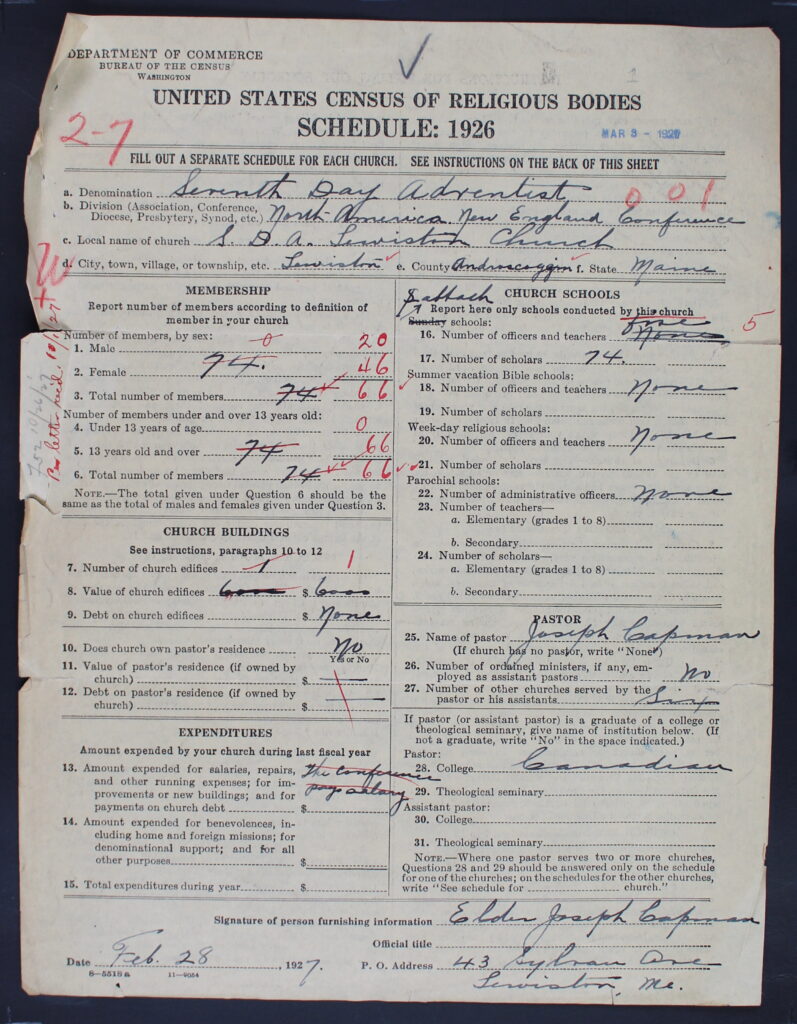 DEPARTMENT OF COMMERCE
BUREAU OF THE CENSUS
WASHINGTON
1
UNITED STATES CENSUS OF RELIGIOUS BODIES
SCHEDULE: 1926
MAR 3 - 1927
2-7
FILL OUT A SEPARATE SCHEDULE FOR EACH CHURCH. SEE INSTRUCTIONS ON THE BACK OF THIS SHEET
a. Denomination Seventh Day Adventist 0 0 1
b. Division (Association, Conference, Diocese, Presbytery, Synod, etc.) North America. New England Conference
c. Local name of church S. D. A. Lewiston Church
d. City, town, village, or township, etc. Lewiston e. County Androscoggin f. State Maine
MEMBERSHIP
Report number of members according to definition of member in your church
Number of members, by sex:
1. Male 0 20
2. Female 74. 46
3. Total number of members 74 66
Number of members under and over 13 years old:
4. Under 13 years of age 0
5. 13 years old and over 74 66
6. Total number of members 74 66
NOTE.—The total given under Question 6 should be the same as the total of males and females given under Question 3.
CHURCH BUILDINGS
See instructions, paragraphs 10 to 12
7. Number of church edifices 1 1
8. Value of church edifices 6000 $ 6000
9. Debt on church edifices $ None
10. Does church own pastor's residence No
Yes or No
11. Value of pastor's residence (if owned by church) $
12. Debt on pastor's residence (if owned by church) $
EXPENDITURES
Amount expended by your church during last fiscal year
13. Amount expended for salaries, repairs, and other running expenses; for improvements or new buildings; and for payments on church debt $ The Conference pays salary
14. Amount expended for benevolences, including home and foreign missions; for denominational support; and for all other purposes $
15. Total expenditures during year $
CHURCH SCHOOLS
Report here only schools conducted by this church
Sabbath
Sunday schools:
16. Number of officers and teachers None five 5
17. Number of scholars 74.
Summer vacation Bible schools:
18. Number of officers and teachers None
19. Number of scholars
Week-day religious schools:
20. Number of officers and teachers None
21. Number of scholars
Parochial schools:
22. Number of administrative officers None
23. Number of teachers—
a. Elementary (grades 1 to 8)
b. Secondary
24. Number of scholars—
a. Elementary (grades 1 to 8)
b. Secondary
PASTOR
25. Name of pastor Joseph Capman
(If church has no pastor, write "None")
26. Number of ordained ministers, if any, employed as assistant pastors No
27. Number of other churches served by the pastor or his assistants Six
If pastor (or assistant pastor) is a graduate of a college or theological seminary, give name of institution below. (If not a graduate, write "No" in the space indicated.)
Pastor:
28. College Canadian
29. Theological seminary
Assistant pastor:
30. College
31. Theological seminary
NOTE.—Where one pastor serves two or more churches, Questions 28 and 29 should be answered only on the schedule for one of the churches; on the schedules for the other churches, write "See schedule for church."
Signature of person furnishing information Elder Joseph Capman
Official title
Date Feb. 28, 1927. P. O. Address 43 Sylvan Ave
Lewiston, Me.
8-5518a 11-9054